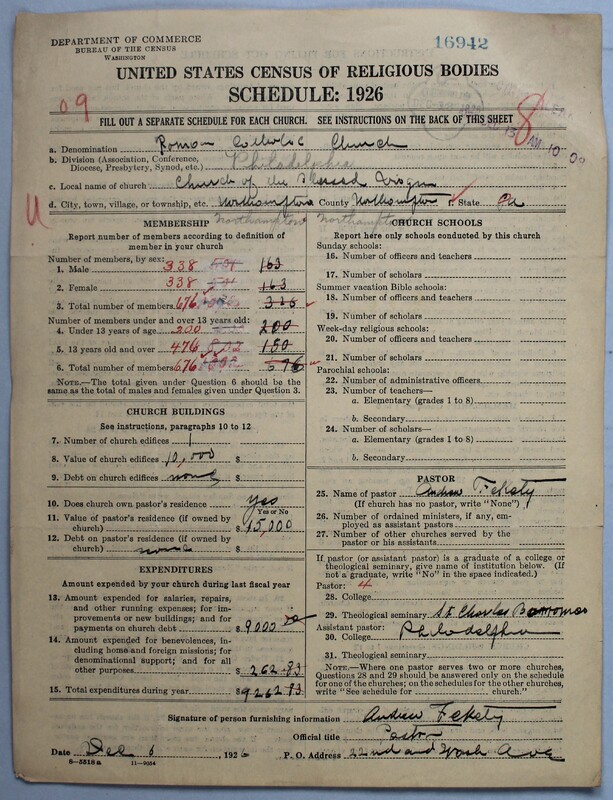 DEPARTMENT OF COMMERCE
BUREAU OF THE CENSUS
WASHINGTON
16942
UNITED STATES CENSUS OF RELIGIOUS BODIES
SCHEDULE: 1926
09
8
FILL OUT A SEPARATE SCHEDULE FOR EACH CHURCH. SEE INSTRUCTIONS ON THE BACK OF THIS SHEET
a. Denomination Roman Catholic Church
b. Division (Association, Conference, Diocese, Presbytery, Synod, etc.) Philadelphia
c. Local name of church Church of the Blessed Virgin
d. City, town, village, or township, etc. Northampton County Northampton State Pa
Northampton Northampton
MEMBERSHIP
Report number of members according to definition of
member in your church
Number of members, by sex:
1. Male 338 163
2. Female 338 163
3. Total number of members 676 326
Number of members under and over 13 years old:
4. Under 13 years of age 200 200
5. 13 years old and over 476 150
6. Total number of members 676
NOTE.—The total given under Question 6 should be
same as the total of males and females given under Question 3.
CHURCH BUILDINGS
See instructions, paragraphs 10 to 12
7. Number of church edifices 1
8. Value of church edifices 10,000 $
9. Debt on church edifices none $
10. Does church own pastor's residence yes
Yes or No
11. Value of pastor's residence (if owned by
church) $ 15,000
12. Debt on pastor's residence (if owned by
church) none $
EXPENDITURES
Amount expended by your church during last fiscal year
13. Amount expended for salaries, repairs,
and other running expenses; for im-
provements or new buildings; and for
payments on church debt $ 9000 00
14. Amount expended for benevolences, in-
cluding home and foreign missions; for
denominational support; and for all
other purposes $ 262.83
15. Total expenditures during year $ 9262 83
CHURCH SCHOOLS
Report here only schools conducted by this church
Sunday schools:
16. Number of officers and teachers
17. Number of scholars
Summer vacation Bible schools:
18. Number of officers and teachers
19. Number of scholars
Week-day religious schools:
20. Number of officers and teachers
21. Number of scholars
Parochial schools:
22. Number of administrative officers
23. Number of teachers—
a. Elementary (grades 1 to 8)
b. Secondary
24. Number of scholars—
a. Elementary (grades 1 to 8)
b. Secondary
PASTOR
25. Name of pastor Andrew Fekety
(If church has no pastor, write "None")
26. Number of ordained ministers, if any, em-
ployed as assistant pastors
27. Number of other churches served by the
pastor or his assistants
If pastor (or assistant pastor) is a graduate of a college or
theological seminary, give name of institution below. (If
not a graduate, write "No" in the space indicated.)
Pastor: 4
28. College
29. Theological seminary St. Charles Borromeo
Assistant pastor:
30. College Philadelphia
31. Theological seminary
NOTE.—Where one pastor serves two or more churches,
Questions 28 and 29 should be answered only on the schedule
for one of the churches; on the schedules for the other churches,
write "See schedule for church."
Signature of person furnishing information Andrew Fekety
Official title Pastor
Date Dec 6, 1926 P. O. Address 22nd and Wash Ave
8—5318a 11—9034